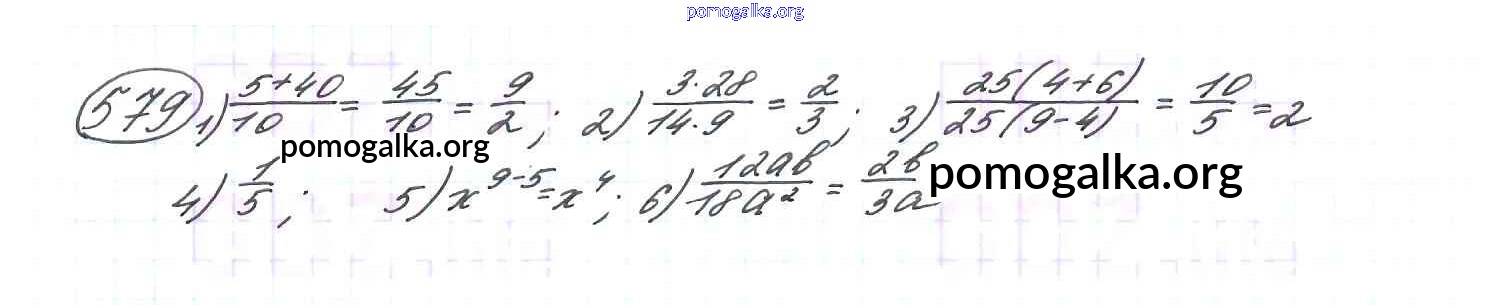 pomogalka.org
579 1) (5+40)/10 = 45/10 = 9/2; 2) (3·28)/(14·9) = 2/3; 3) 25(4+6)/25(9-4) = 10/5 = 2
pomogalka.org
4) 1/5; 5) x^(9-5) = x^4; 6) 12ab/18a² = 2b/3a
pomogalka.org